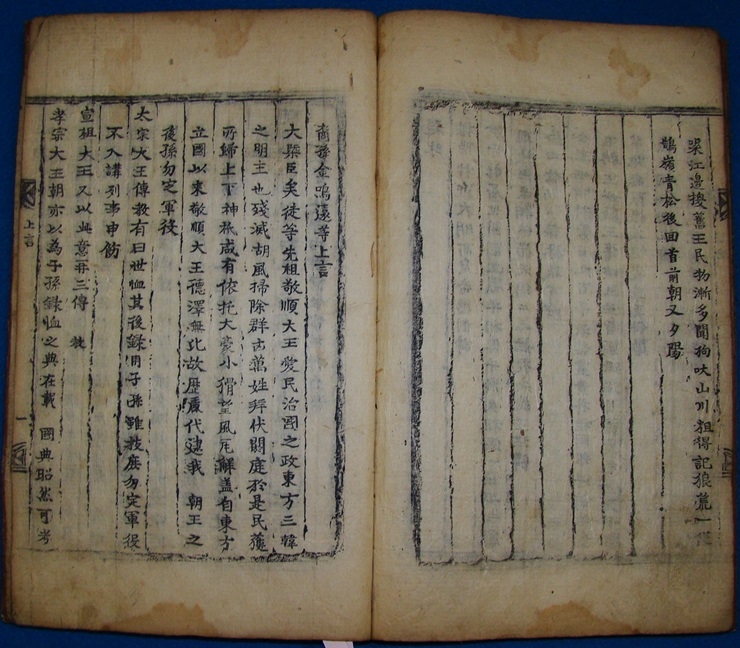 渠江邊擁舊王民物漸多聞狗吠山川粗得記狼荒一
鵲嶺青松後回首前朝又夕陽
商孫金鳴遠等上言
大槩臣矣徒等先祖敬順大王愛民治國之政東方三韓
之明主也殘滅胡風掃除群古萬姓拜伏闕庭於是民獲
所歸上下神祇咸有依托大豪小猾望風瓦解盖自東方
立國以來敬順大王德澤無比故歷代逮我 朝王之
後孫勿定軍役
太宗大王傳敎有曰世恤其後錄用子孫雖賤庶勿定軍役
不入講列事申飭
宣祖大王又以此意再三傳
孝宗大王朝亦以為子孫錄恤之典在載 國典昭然可考
上言
一